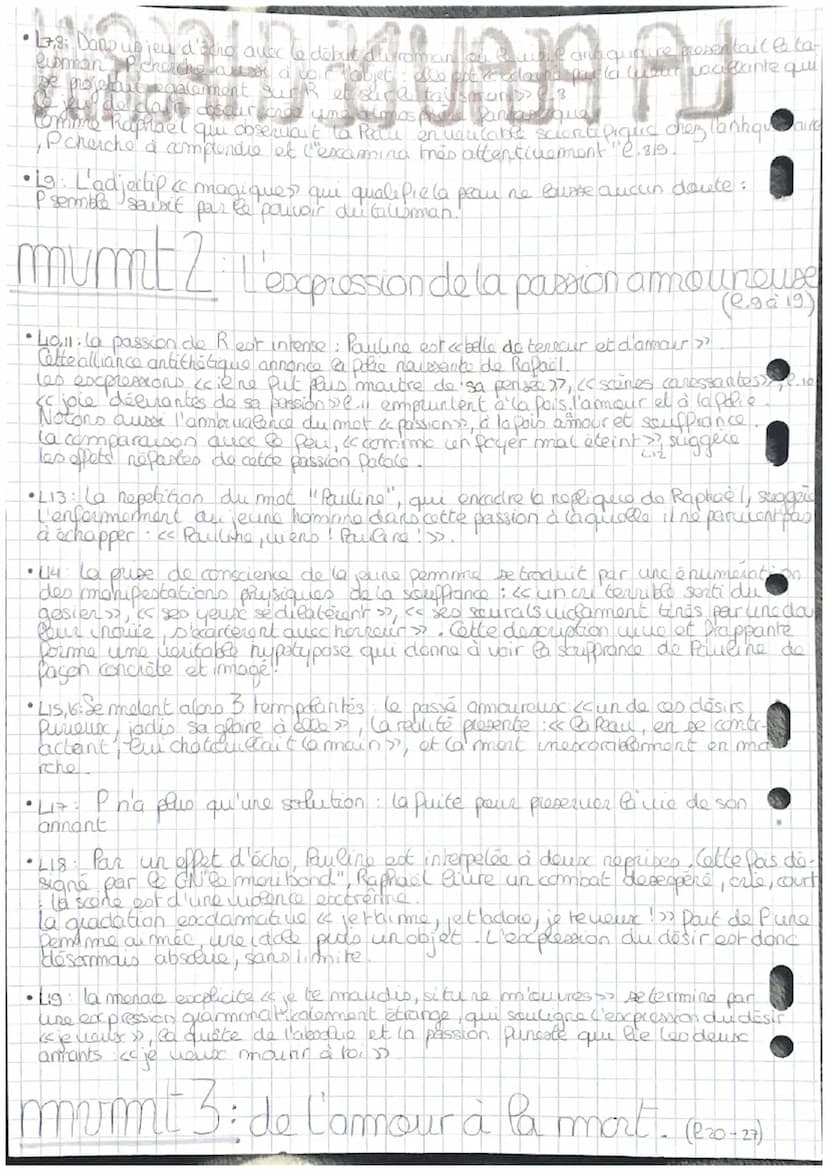 • L7,8: Dans un jeu d'écho avec le début du roman où l'antiquaire présentait le ta-
lisman, P cherche aussi à voir l'objet : elle est éclairée par la lueur vacillante qui
se projetait également sur R et sur
le jeu de clair-obscur crée une atmosphère fantastique
Comme Raphaël qui observait la Peau en véritable scientifique chez l'antiquaire
, P cherche à comprendre et l'"examina très attentivement" l.8/9.
• L9 : L'adjectif << magique>> qui qualifie la peau ne laisse aucun doute :
P semble saisit par le pouvoir du talisman.
mvmt 2 : L'expression de la passion amoureuse
(l.9 à 19)
• L10,11 : la passion de R est intense : Pauline est << belle de terreur et d'amour >>
Cette alliance antithétique annonce la folie naissante de Rafaël.
les expressions << il ne fut plus maître de sa pensée >>, << scènes caressantes>> l.10
<< joie délirantes de sa passion >> l.11 empruntent à la fois l'amour et à la folie.
Notons aussi l'ambivalence du mot << passion>>, à la fois amour et souffrance.
la comparaison avec le feu, << comme un foyer mal éteint >> suggère
L12
les effets néfastes de cette passion fatale.
• L13 : la repetition du mot "Pauline", qui encadre la replique de Raphaël, suggère
l'enfermement du jeune homme dans cette passion à laquelle il ne parvient pas
à échapper : << Pauline, viens ! Pauline ! >>.
• L14 : la prise de conscience de la jeune femme se traduit par une énumération
des manifestations physiques de la souffrance : << un cri terrible sorti du
gosier >>, << ses yeux se dilatèrent >>, << ses sourcils violemment tirés par une dou
leur inouïe, s'écartèrent avec horreur >>. Cette description vive et frappante
forme une véritable hypotypose qui donne à voir la souffrance de Pauline de
façon concrète et imagé.
• L15,16 : Se melent alors 3 temporalités : le passé amoureux << un de ces désirs
furieux, jadis sa gloire à elle >>, la réalité présente : << la Peau, en se contr-
actant, lui chatouillait la main >>, et la mort inexorablement en ma
rche.
• L17 : P n'a plus qu'une solution : la fuite pour preserver la vie de son
amant
• L18 : Par un effet d'écho, Pauline est interpelée à deux reprises. Cette fois dé-
signé par le GN "le moribond", Raphaël livre un combat désespéré, crie, court
: la scène est d'une violence extrême.
la gradation exclamative << je t'aime, je t'adore, je te veux ! >> fait de P une
femme aimée, une idole puis un objet. L'expression du désir est donc
désormais absolue, sans limite.
• L19 : la menace explicite << je te maudis, si tu ne m'ouvres >> se termine par
une expression grammaticalement étrange, qui souligne l'expression du désir
<< je veux >>, la quête de l'absolue et la passion funeste qui lie les deux
amants : << je veux mourir à toi >>
mvmt 3 : de l'amour à la mort. (l20-27)